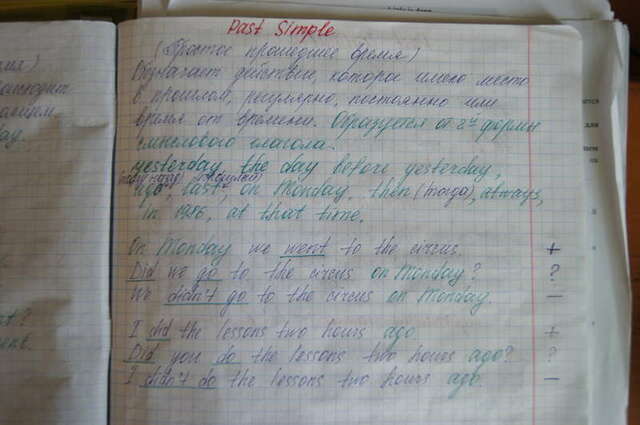 Past Simple
(Простое прошедшее время)
Обозначает действие, которое имело место
в прошлом, регулярно, постоянно или
время от времени. Образуется от 2й формы
смыслового глагола.
yesterday, the day before yesterday,
ago, last, on Monday, then (тогда), always,
in 1986, at that time.
On Monday we went to the circus. +
Did we go to the circus on Monday? ?
We didn't go to the circus on Monday. –
I did the lessons two hours ago. +
Did you do the lessons two hours ago? ?
I didn't do the lessons two hours ago. –